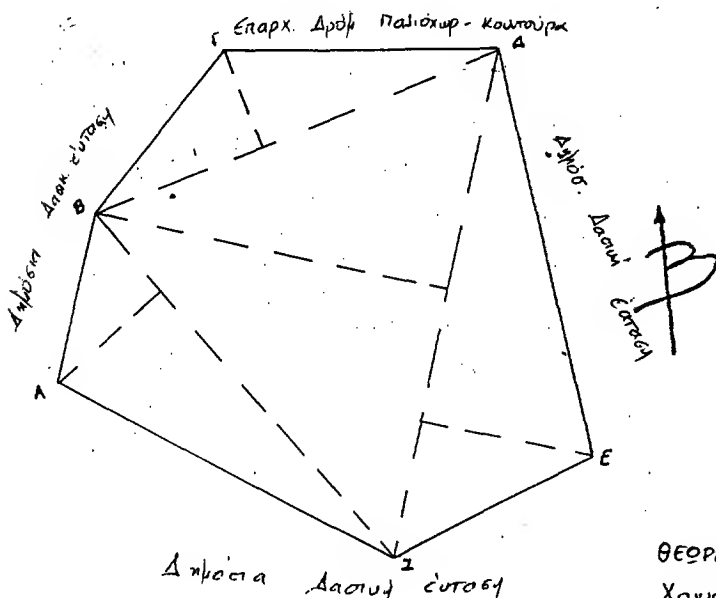 Γ Επαρχ. Δρόμ Παλιόχωρ - Κουντούρα Δ
Δημόσια Δασικ. έκταση
Β
Δημόσ. Δασική έκταση
Β
Α
Ε
Ζ
Δημόσια Δασική έκταση
ΘΕΩΡ